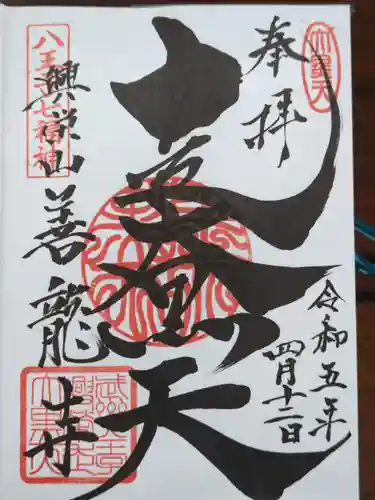 奉拝
大黒天
令和五年
四月十二日
大黒天
八王子七福神
興栄山
善龍寺